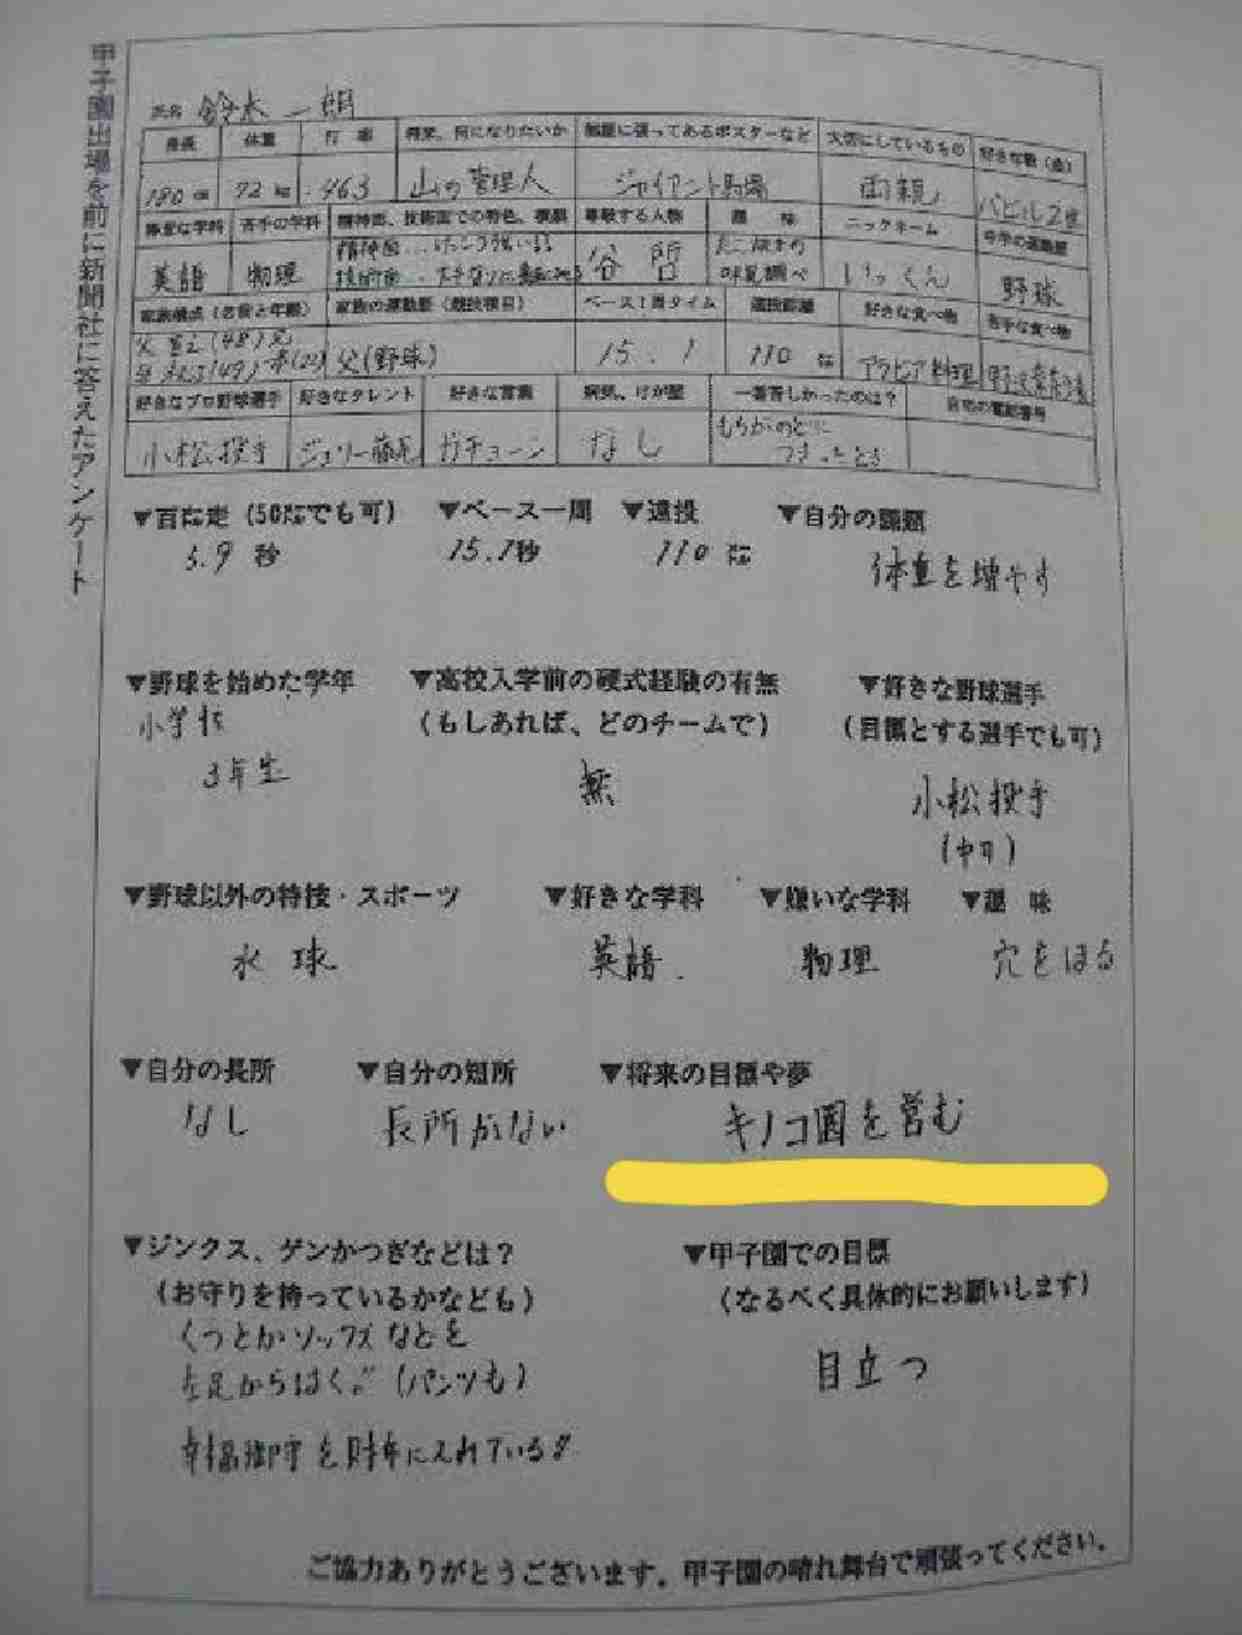 甲子園出場を前に新聞社に答えたアンケート
氏名 鈴木一朗
身長 体重 打率 将来、何になりたいか 部屋に張ってあるポスターなど 大切にしているもの 好きな歌(曲)
180cm 72kg .463 山の管理人 ジャイアント馬場 両親 バビル2世
得意な学科 苦手の学科 精神面、技術面での特色、横顔 尊敬する人物 趣味 ニックネーム 中学の運動歴
英語 物理 精神面‥けっこう 谷 たこ焼きの いっくん 野球
技術面‥ 味見調べ
家族構成(名前と年齢) 家族の運動歴(競技種目) ベース1周タイム 遠投距離 好きな食べ物 苦手な食べ物
父 (48) 兄
母 (49) 弟 父(野球) 15.1 110m アラビア料理
好きなプロ野球選手 好きなタレント 好きな言葉 病気、けが歴 一番苦しかったのは? 自宅の電話番号
小松投手 ジェリー藤尾 ガチョーン なし もちがのどに
つまったとき
▼百㍍走(50㍍でも可) ▼ベース一周 ▼遠投 ▼自分の課題
5.9秒 15.1秒 110㍍ 体重を増やす
▼野球を始めた学年 ▼高校入学前の硬式経験の有無 ▼好きな野球選手
小学校 (もしあれば、どのチームで) (目標とする選手でも可)
3年生 無 小松投手
(中日)
▼野球以外の特技・スポーツ ▼好きな学科 ▼嫌いな学科 ▼趣味
水球 英語 物理 穴をほる
▼自分の長所 ▼自分の短所 ▼将来の目標や夢
なし 長所がない キノコ園を営む
▼ジンクス、ゲンかつぎなどは? ▼甲子園での目標
(お守りを持っているかなども) (なるべく具体的にお願いします)
くつとかソックスなどを
左足からはく。(パンツも) 目立つ
幸福御守を財布に入れている!!
ご協力ありがとうございます。甲子園の晴れ舞台で頑張ってください。